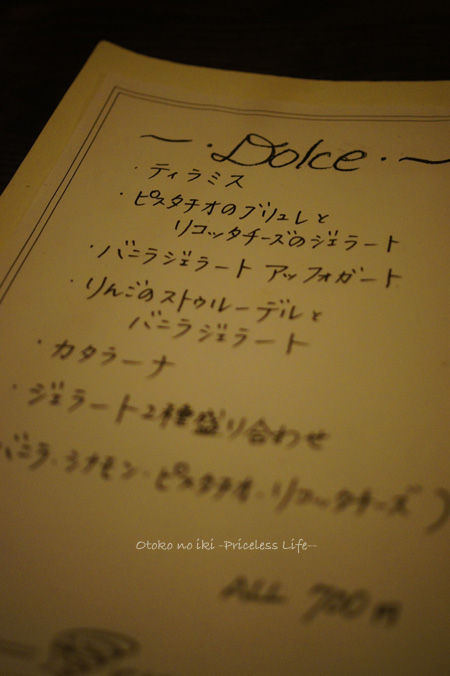 ~・Dolce・~
・ティラミス
・ピスタチオのブリュレと
リコッタチーズのジェラート
・バニラジェラート アッフォガート
・りんごのストゥルーデルと
バニラジェラート
・カタラーナ
・ジェラート2種盛り合わせ
バニラ・シナモン・ピスタチオ・リコッタチーズ)
Otoko no iki -Priceless Life--
ALL 700円